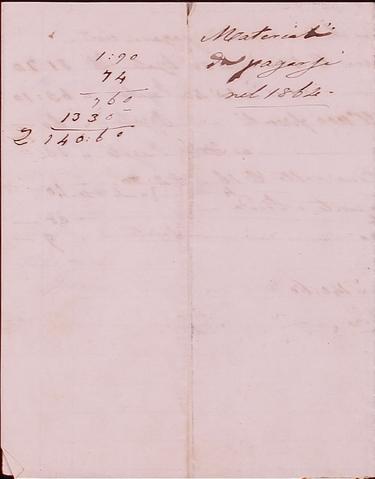 1:90
74
760
1330
2 140:60
Materiali
da pagarsi
nel 1864.